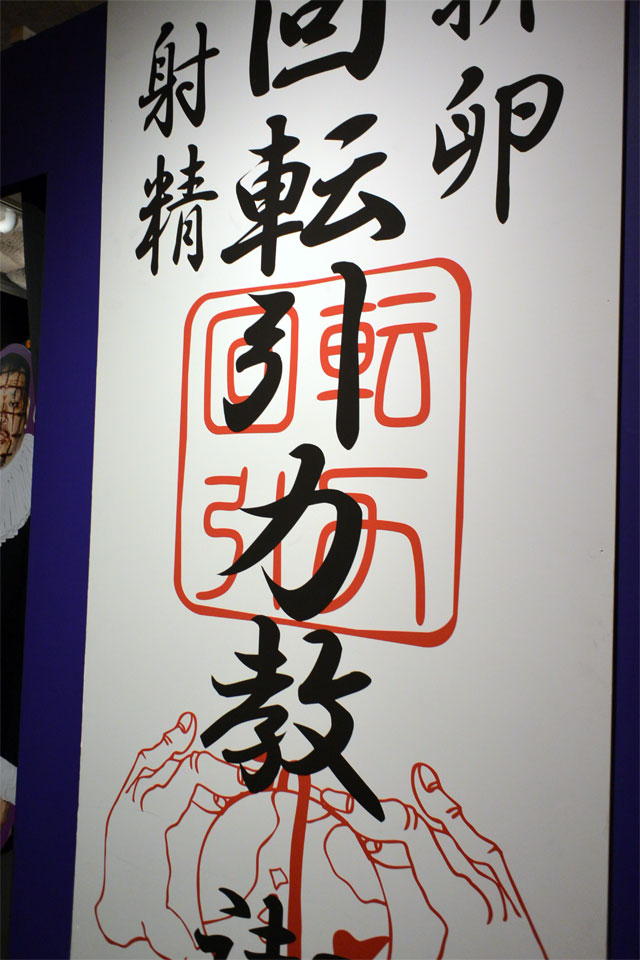 卵
回転引力教
射精
回転
引力